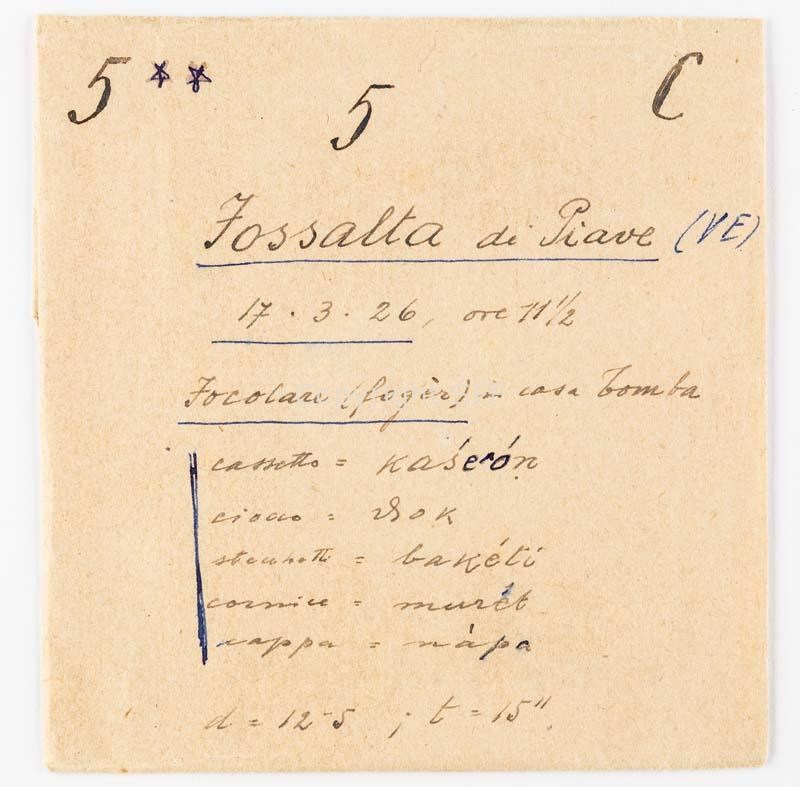 5 ** 5 C
Fossalta di Piave (VE)
17 . 3 . 26, ore 11 1/2
Focolare (fogèr) in casa Tomba
cassetto = kaśerón
ciocco = ϑok
stecchetti = bakéti
cornice = murét
cappa = nápa
d = 12-5 ; t = 15"